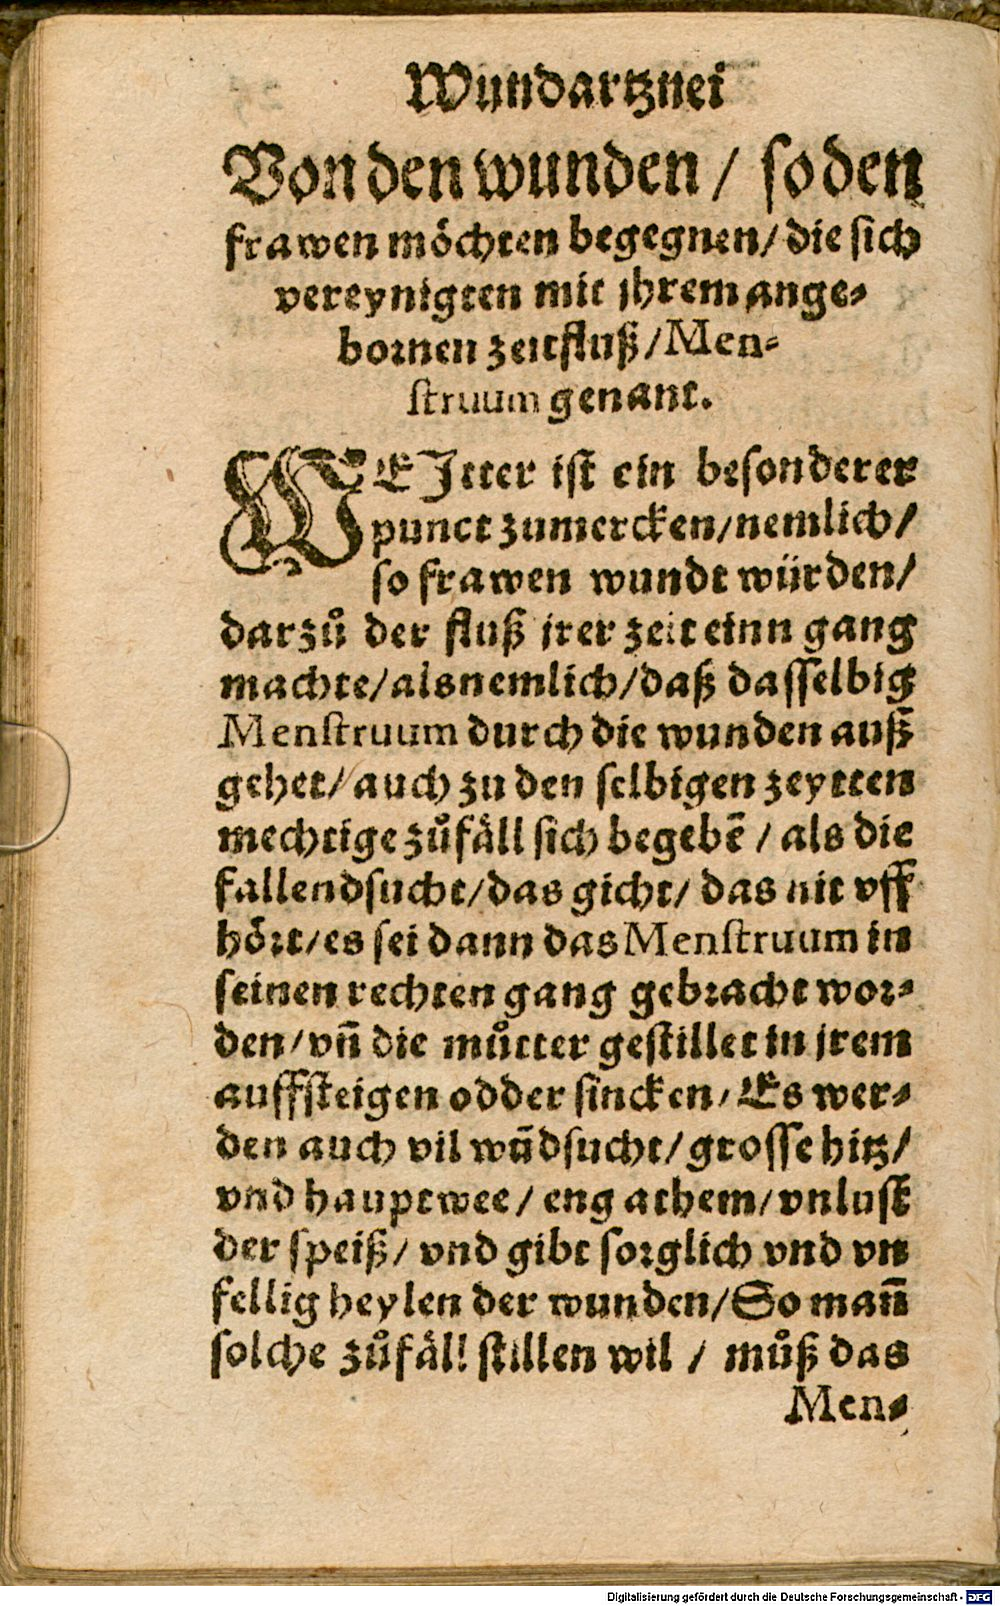 Wundartznei
Von den wunden / so den
frawen möchten begegnen / die sich
vereynigten mit jhrem ange⸗
bornen zeitfluß / Men⸗
struum genant.
WEJtter ist ein besonderer
punct zumercken / nemlich /
so frawen wundt würden /
darzů der fluß jrer zeit einn gang
machte / als nemlich / daß dasselbig
Menstruum durch die wunden auß̄
gehet / auch zu den selbigen zeytten
mechtige zůfäll sich begebē / als die
fallendsucht / das gicht / das nit vff
hört / es sei dann das Menstruum in
seinen rechten gang gebracht wor⸗
den / vñ die můtter gestillet in jrem
auffsteigen odder sincken / Es wer⸗
den auch vil wūdsucht / grosse hitz /
vnd hauptwee / eng athem / vnlust
der speiß / vnd gibt sorglich vnd vn
fellig heylen der wunden / So mañ
solche zůfäll stillen wil / můß das
Men⸗
Digitalisierung gefördert durch die Deutsche Forschungsgemeinschaft - DFG